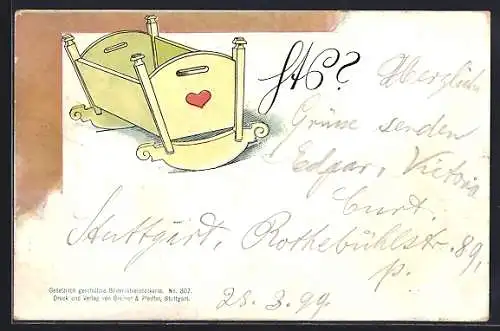 Herzliche
Grüsse senden
Edgar, Victoria
Curt.
Stuttgart, Rothebühlstr. 89,
p.
28.3.99.
Gesetzlich geschützte Bilderrätselpostkarte. No. 807.
Druck und Verlag von Greiner & Pfeiffer, Stuttgart.